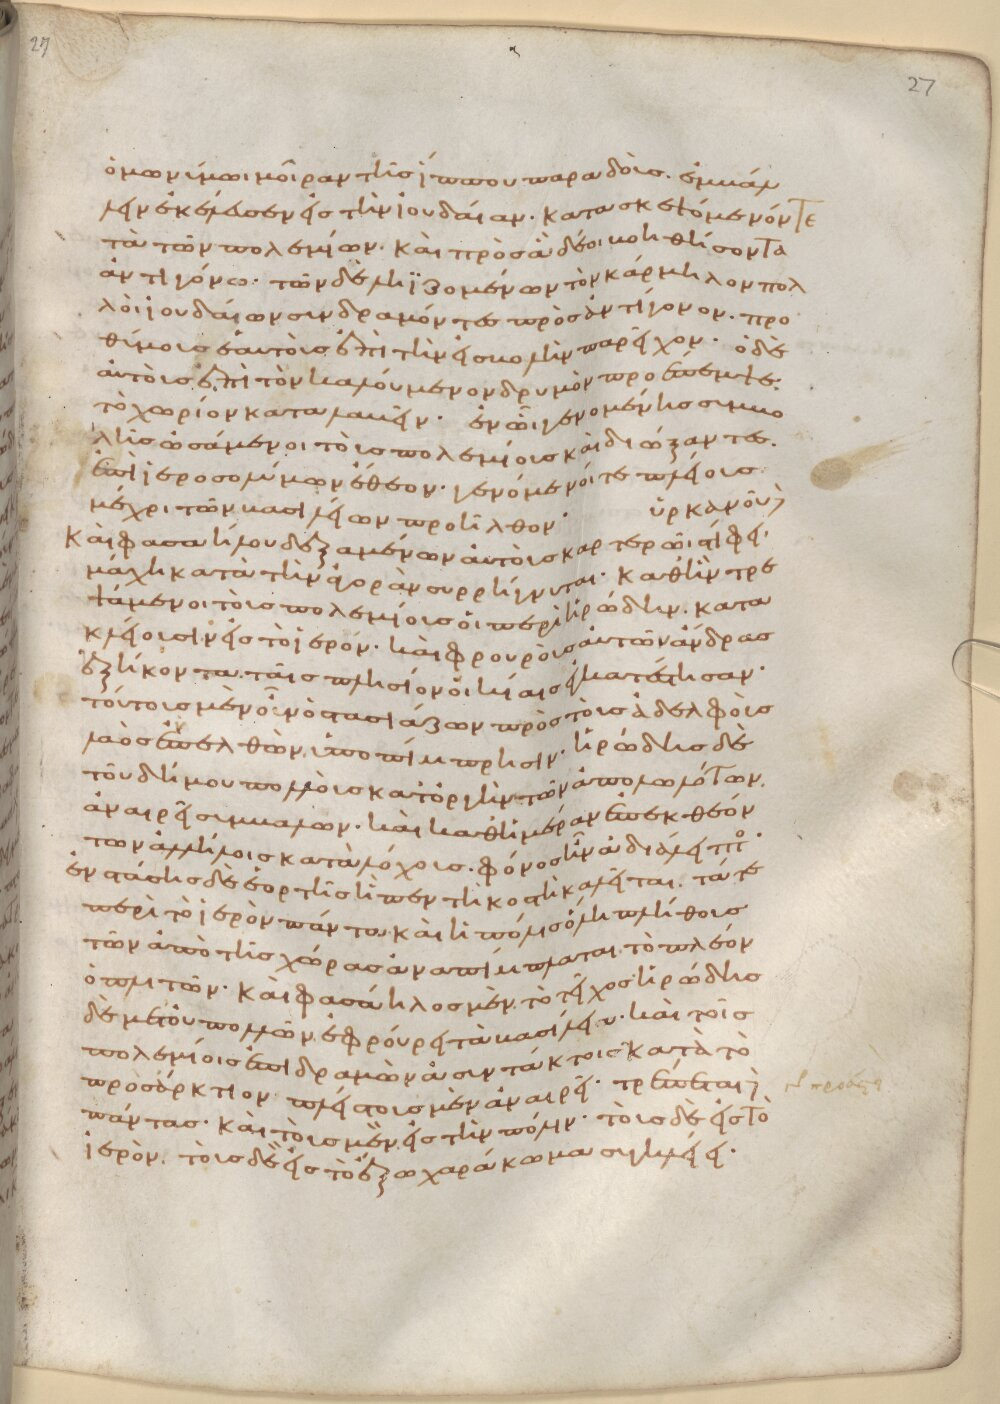 27
27
ὁμωνύμωι μοῖραν τῆς ἵππου παραδοὺς. ἔμπαλι
λιν ἐκέλευσεν εἰς τὴν ἰουδαίαν. κατασκεψόμενόν τε
τὰ τῶν πολεμίων. καὶ πρὸς ἃ δέοι βοηθήσοντα
ἀντιγόνω. τῶν δὲ ληϊζομένων τὸν κάρμηλον πολ
λοὶ ἰουδαίων συνδραμόντες πρὸς ἀντίγονον. προ
θύμους ἑαυτοὺς ἐπὶ τὴν εἰσβολὴν παρεῖχον. ὁ δὲ
αὐτοὺς ἐπὶ τὸν καλούμενον δρυμὸν προέπεμψε.
τὸ χωρίον καταλαβεῖν. ἐν ὧι γενομένης συμβο
λῆς ὠσάμενοι τοὺς πολεμίους καὶ διώξαντες.
ἐπὶ ἱεροσολύμων ἔθεον. γενόμενοί τε πλείους
μέχρι τῶν βασιλείων προῆλθον. ὑρκανοῦ δὲ
καὶ φασαήλου δεξαμένων αὐτοὺς καρτερῶι στίφει.
μάχη κατὰ τὴν ἀγορὰν συρρήγνυται. καθ' ἣν τρε
ψάμενοι τοὺς πολεμίους οἱ περὶ ἡρώδην. κατα
κλείουσιν εἰς τὸ ἱερόν. καὶ φρουροὺς αὐτῶν ἄνδρας
ἑξήκοντα ταῖς πλησίον οἰκίαις ἐγκατέστησαν.
τούτους μὲν οὖν ὁ στασιάζων πρὸς τοὺς ἀδελφοὺς
λαὸς ἐπελθὼν ὑποπίμπρησιν. ἡρώδης δὲ
τοῦ δήμου πολλοὺς κατ' ὀργὴν τῶν ἀπολωλότων.
ἀναιρεῖ συμβαλών. καὶ καθ' ἡμέραν ἐπεκθεόν
των ἀλλήλοις κατὰ λόχους. φόνος ἦν ἀδιάλειπτος.
ἐνστάσης δὲ ἑορτῆς ἣ πεντηκοστὴ καλεῖται. τά τε
περὶ τὸ ἱερὸν πάντα καὶ ἡ πόλις ὅλη πλήθους
τῶν ἀπὸ τῆς χώρας ἀναπίμπλαται. τὸ πλέον
ὁπλιτῶν. καὶ φασάηλος μὲν τὸ τεῖχος. ἡρώδης
δὲ μετ' οὐ πολλῶν ἐφρούρει τὰ βασίλεια. καὶ τοῖς
πολεμίοις ἐπιδραμὼν ἀσυντάκτοις κατὰ τὸ
πρὸς ἄρκτιον πλείστους μὲν ἀναιρεῖ. τρέπεται δὲ
πάντας. καὶ τοὺς μὲν εἰς τὴν πόλιν. τοὺς δὲ εἰς τὸ
ἱερὸν. τοὺς δὲ εἰς τὸ ἔξω χαράκωμα συγκλείει.